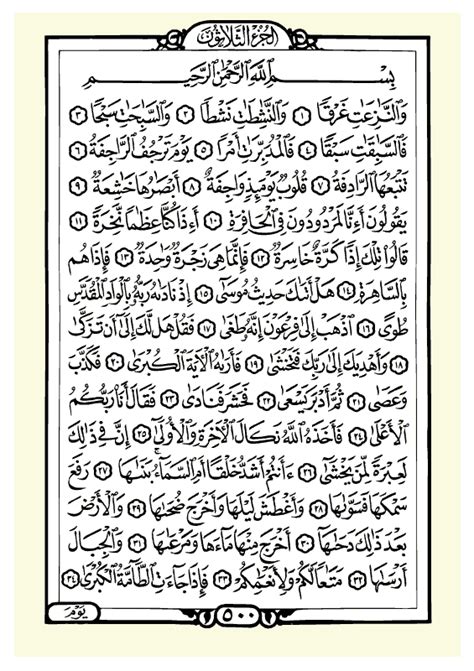 الجزء الثلاثون
بِسْمِ اللَّهِ الرَّحْمَٰنِ الرَّحِيمِ
وَالنَّازِعَاتِ غَرْقًا ١ وَالنَّاشِطَاتِ نَشْطًا ٢ وَالسَّابِحَاتِ سَبْحًا ٣
فَالسَّابِقَاتِ سَبْقًا ٤ فَالْمُدَبِّرَاتِ أَمْرًا ٥ يَوْمَ تَرْجُفُ الرَّاجِفَةُ ٦
تَتْبَعُهَا الرَّادِفَةُ ٧ قُلُوبٌ يَوْمَئِذٍ وَاجِفَةٌ ٨ أَبْصَارُهَا خَاشِعَةٌ ٩
يَقُولُونَ أَءِنَّا لَمَرْدُودُونَ فِي الْحَافِرَةِ ١٠ أَءِذَا كُنَّا عِظَامًا نَّخِرَةً ١١
قَالُوا تِلْكَ إِذًا كَرَّةٌ خَاسِرَةٌ ١٢ فَإِنَّمَا هِيَ زَجْرَةٌ وَاحِدَةٌ ١٣ فَإِذَا هُم
بِالسَّاهِرَةِ ١٤ هَلْ أَتَىٰكَ حَدِيثُ مُوسَىٰ ١٥ إِذْ نَادَاهُ رَبُّهُ بِالْوَادِ الْمُقَدَّسِ
طُوًى ١٦ اذْهَبْ إِلَىٰ فِرْعَوْنَ إِنَّهُ طَغَىٰ ١٧ فَقُلْ هَل لَّكَ إِلَىٰ أَن تَزَكَّىٰ
١٨ وَأَهْدِيَكَ إِلَىٰ رَبِّكَ فَتَخْشَىٰ ١٩ فَأَرَاهُ الْآيَةَ الْكُبْرَىٰ ٢٠ فَكَذَّبَ
وَعَصَىٰ ٢١ ثُمَّ أَدْبَرَ يَسْعَىٰ ٢٢ فَحَشَرَ فَنَادَىٰ ٢٣ فَقَالَ أَنَا رَبُّكُمُ
الْأَعْلَىٰ ٢٤ فَأَخَذَهُ اللَّهُ نَكَالَ الْآخِرَةِ وَالْأُولَىٰ ٢٥ إِنَّ فِي ذَٰلِكَ
لَعِبْرَةً لِّمَن يَخْشَىٰ ٢٦ ءَأَنتُمْ أَشَدُّ خَلْقًا أَمِ السَّمَاءُ بَنَاهَا ٢٧ رَفَعَ
سَمْكَهَا فَسَوَّاهَا ٢٨ وَأَغْطَشَ لَيْلَهَا وَأَخْرَجَ ضُحَاهَا ٢٩ وَالْأَرْضَ
بَعْدَ ذَٰلِكَ دَحَاهَا ٣٠ أَخْرَجَ مِنْهَا مَاءَهَا وَمَرْعَاهَا ٣١ وَالْجِبَالَ
أَرْسَاهَا ٣٢ مَتَاعًا لَّكُمْ وَلِأَنْعَامِكُمْ ٣٣ فَإِذَا جَاءَتِ الطَّامَّةُ الْكُبْرَىٰ ٣٤
٥٠٠
يَوْمَ